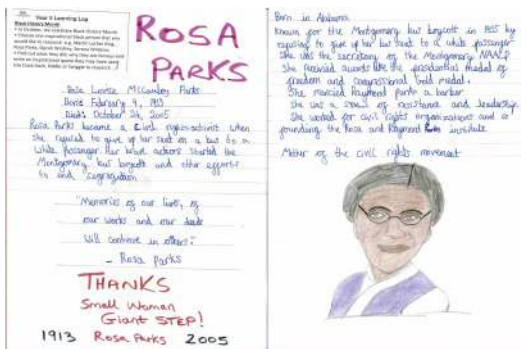 Year 5 Learning Log
Black History Month
ROSA
PARKS
- Rosa Louise McCauley Parks
Born: February 4, 1913
Died: October 24, 2005
Rosa Parks became a Civil rights activist when
she refused to give up her seat on a bus to a
white passenger. Her brave actions started the
Montgomery bus boycott and other efforts
to end segregation
"Memories of our lives, of
our works and our deeds
will continue in others."
- Rosa Parks
THANKS
Small Woman
Giant STEP!
1913 Rosa Parks 2005
Born in Alabama
Known for the Montgomery bus boycott in 1955 by
refusing to give up her bus seat to a white passenger
She was the secretary of the Montgomery NAACP
She received awards like the presidential medal of
freedom and congressional gold medal.
She married Raymond Parks a barber
She was a of resistance and leadership.
She worked for civil rights organizations and co
founding the Rosa and Raymond institute.
Mother of the civil rights movement